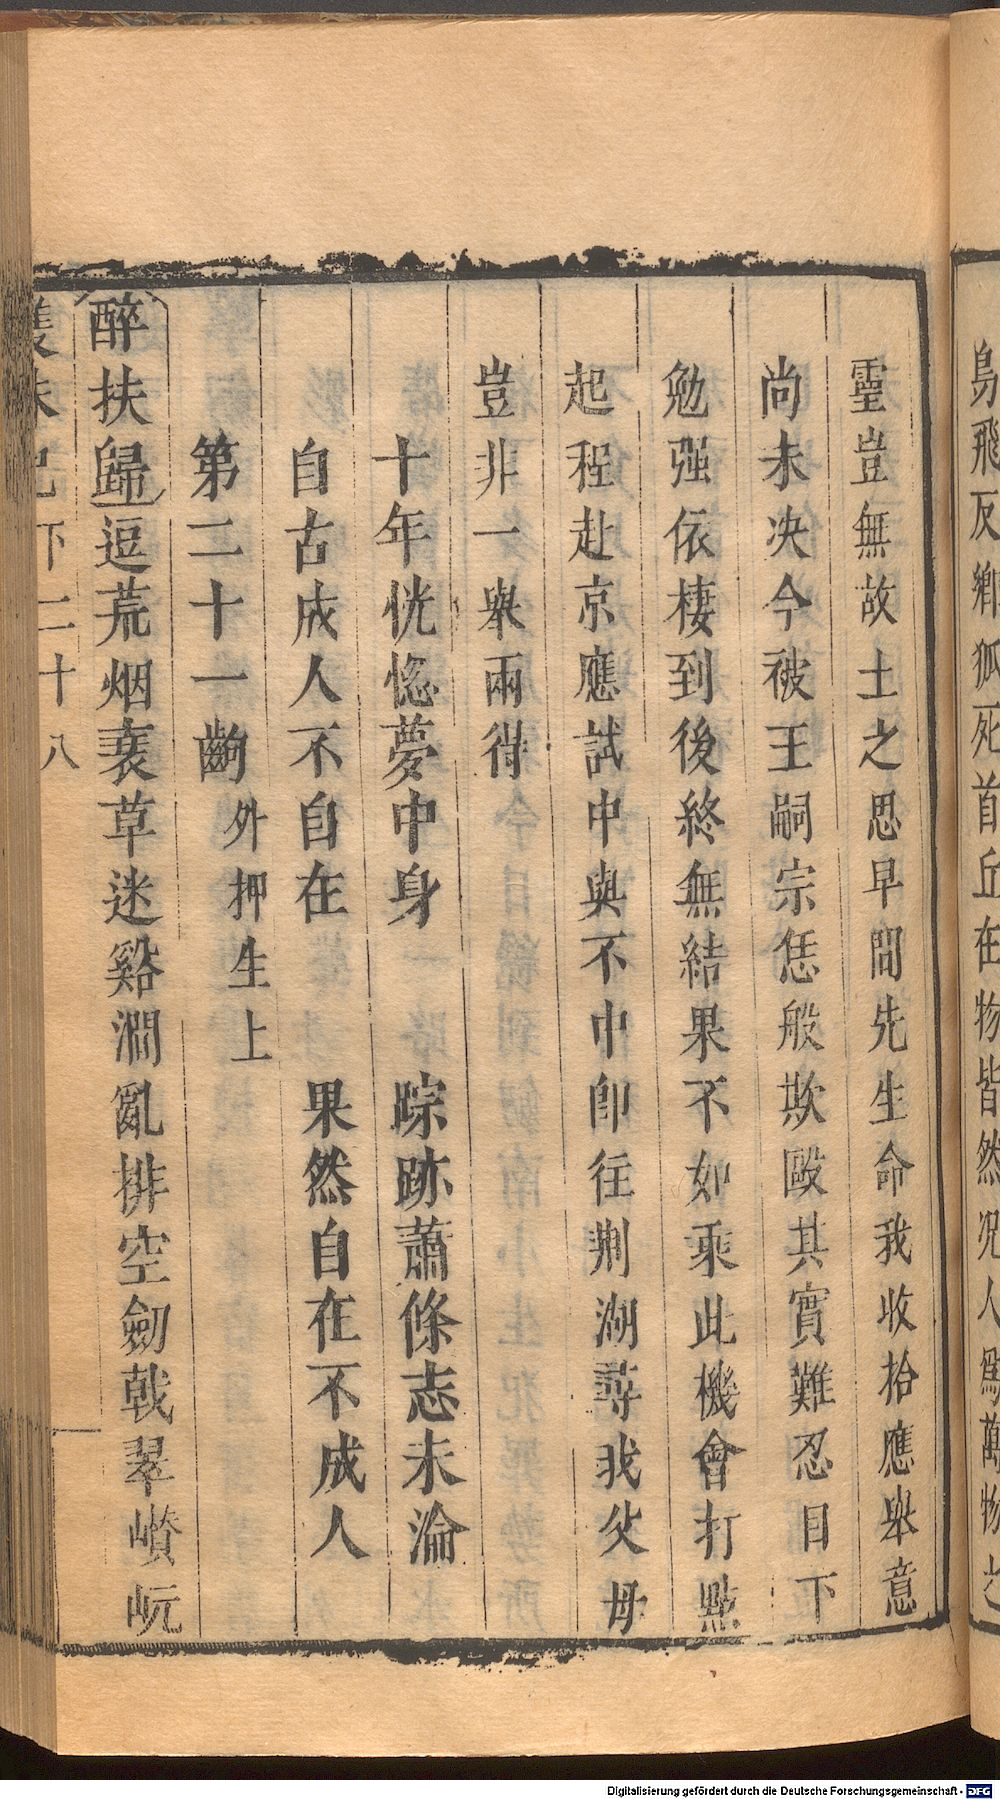 鳥飛反鄉狐死首丘在物皆然况人爲萬物之
靈豈無故土之思早間先生命我收拾應舉意
尚未决今被王嗣宗恁般欺毆其實難忍目下
勉强依棲到後終無結果不如乘此機會打㸃
起程赴京應試中與不中卽往荆湖尋我父母
豈非一舉兩得
十年恍惚夢中身 踪跡蕭條志未淪
自古成人不自在 果然自在不成人
第二十一齣 外押生上
醉扶歸 逗荒烟衰草迷谿澗亂排空劒戟翠巑岏
珠記下 二十八
Digitalisierung gefördert durch die Deutsche Forschungsgemeinschaft - DFG